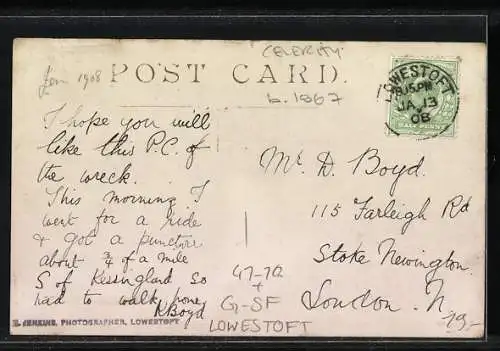 CELERITY
Jan 1908
POST CARD.
b. 1867
LOWESTOFT
8.15 PM
JA 13
08
HALF PENNY
I hope you will
like this P.C. of
the wreck.
This morning I
went for a ride
& got a puncture
about ¾ of a mile
S of Kessingland so
had to walk home
R Boyd
Mr D. Boyd.
115 Farleigh Rd
Stoke Newington
London. N
47-72
+
G-SF
LOWESTOFT
JENKINS, PHOTOGRAPHER, LOWESTOFT